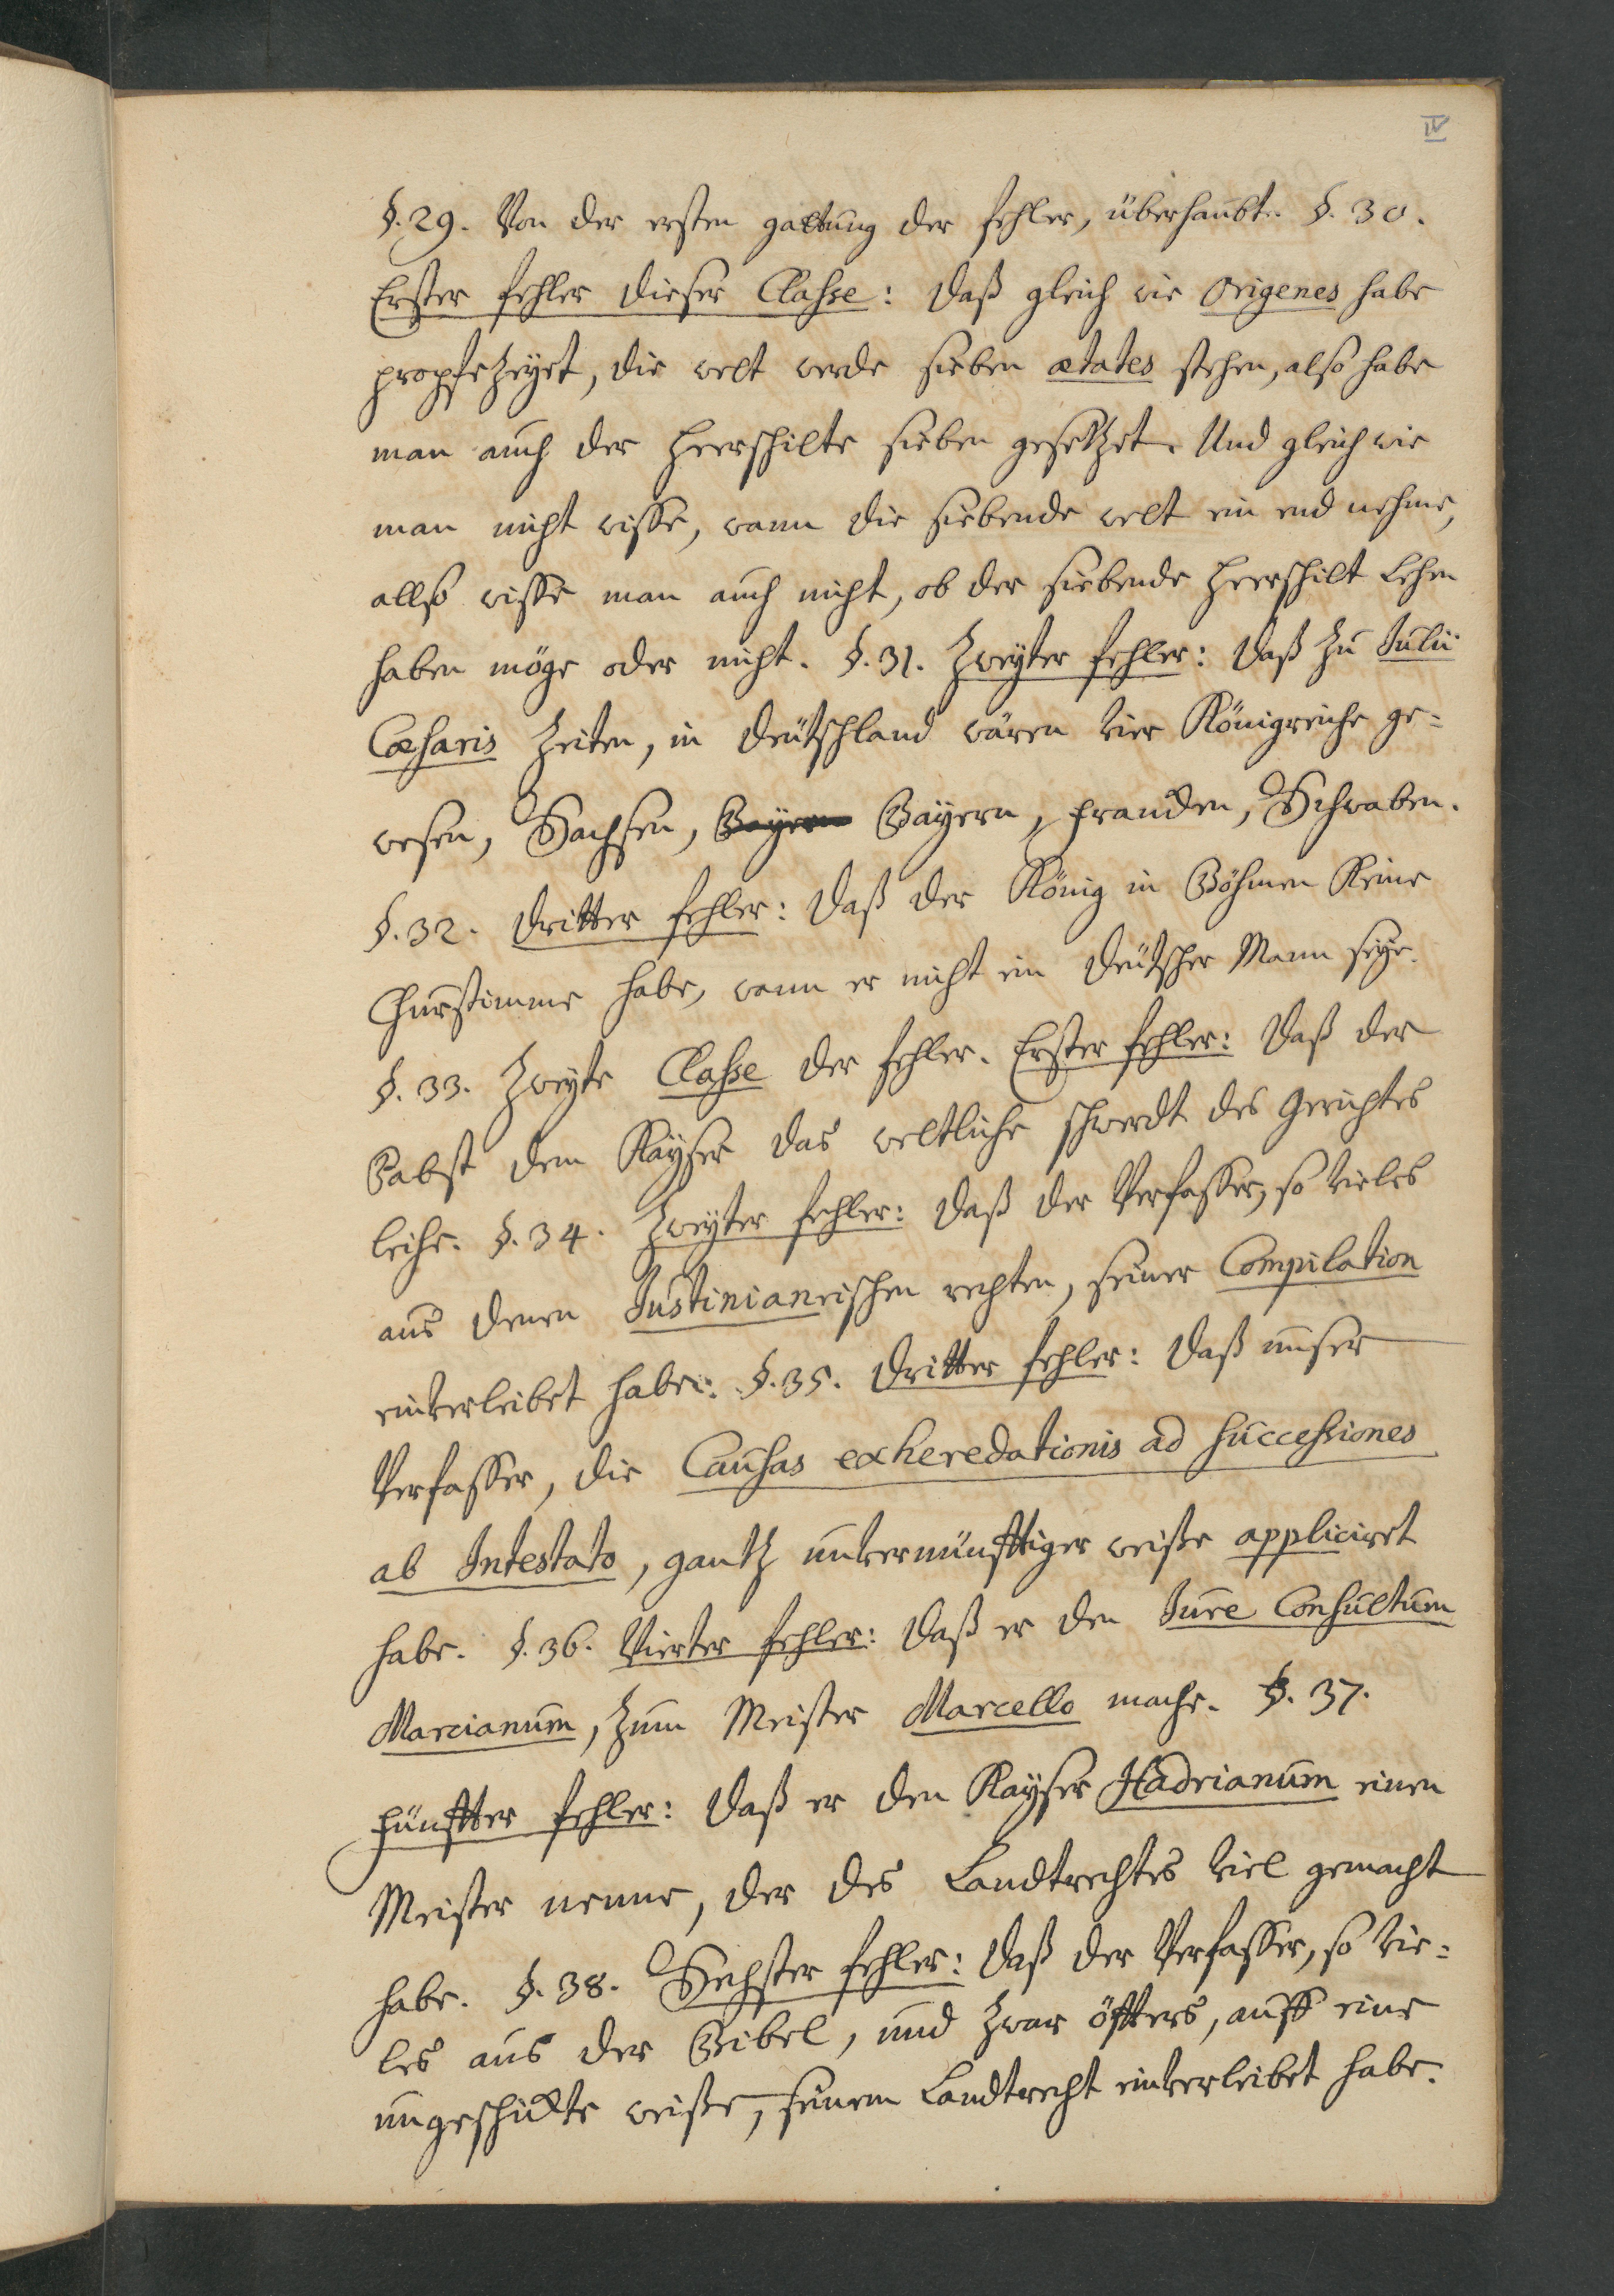 IV
§. 29. Von der ersten gattung der fehler, überhaubt. §. 30.
Erster fehler dieser Classe: daß gleich wie Origenes habe
propfezeyet, die welt werde sieben ætates stehen, also habe
man auch der heerschilte sieben gesetzet. Und gleich wie
man nicht wisse, wann die siebende welt ein end nehme,
allso wisse man auch nicht, ob der siebende heerschilt lehen
haben möge oder nicht. §. 31. Zweyter fehler: daß zu Julii
Cæsaris Zeiten, in deütschland wären vier Königreiche ge=
wesen, Sachsen, Bayern Bayern, francken, Schwaben.
§. 32. dritter fehler: daß der König in Böhmen keine
Churstimme habe, wann er nicht ein deütscher Mann seye.
§. 33. Zweyte Classe der fehler. Erster fehler: daß der
Pabst dem Kayser das weltliche schwerdt des gerichtes
leihe. §. 34. Zweyter fehler: daß der Verfasser, so vieles
aus denen Justinianeischen rechten, seiner Compilation
einverleibet habe. §. 35. dritter fehler: daß unser
Verfasser, die Causas exheredationis ad successiones
ab Intestato, gantz unvernünfftiger weiße appliciret
habe. §. 36. Vierter fehler: daß er den Jure Consultum
Marcianum, zum Meister Marcello mache. §. 37.
fünffter fehler: daß er den Kayser Hadrianum einen
Meister nenne, der des Landtrechtes viel gemacht
habe. §. 38. Sechster fehler: daß der Verfasser, so vie=
les aus der Bibel, und zwar öffters, auff eine
ungeschickte weiße, seinem Landtrecht einverleibet habe.